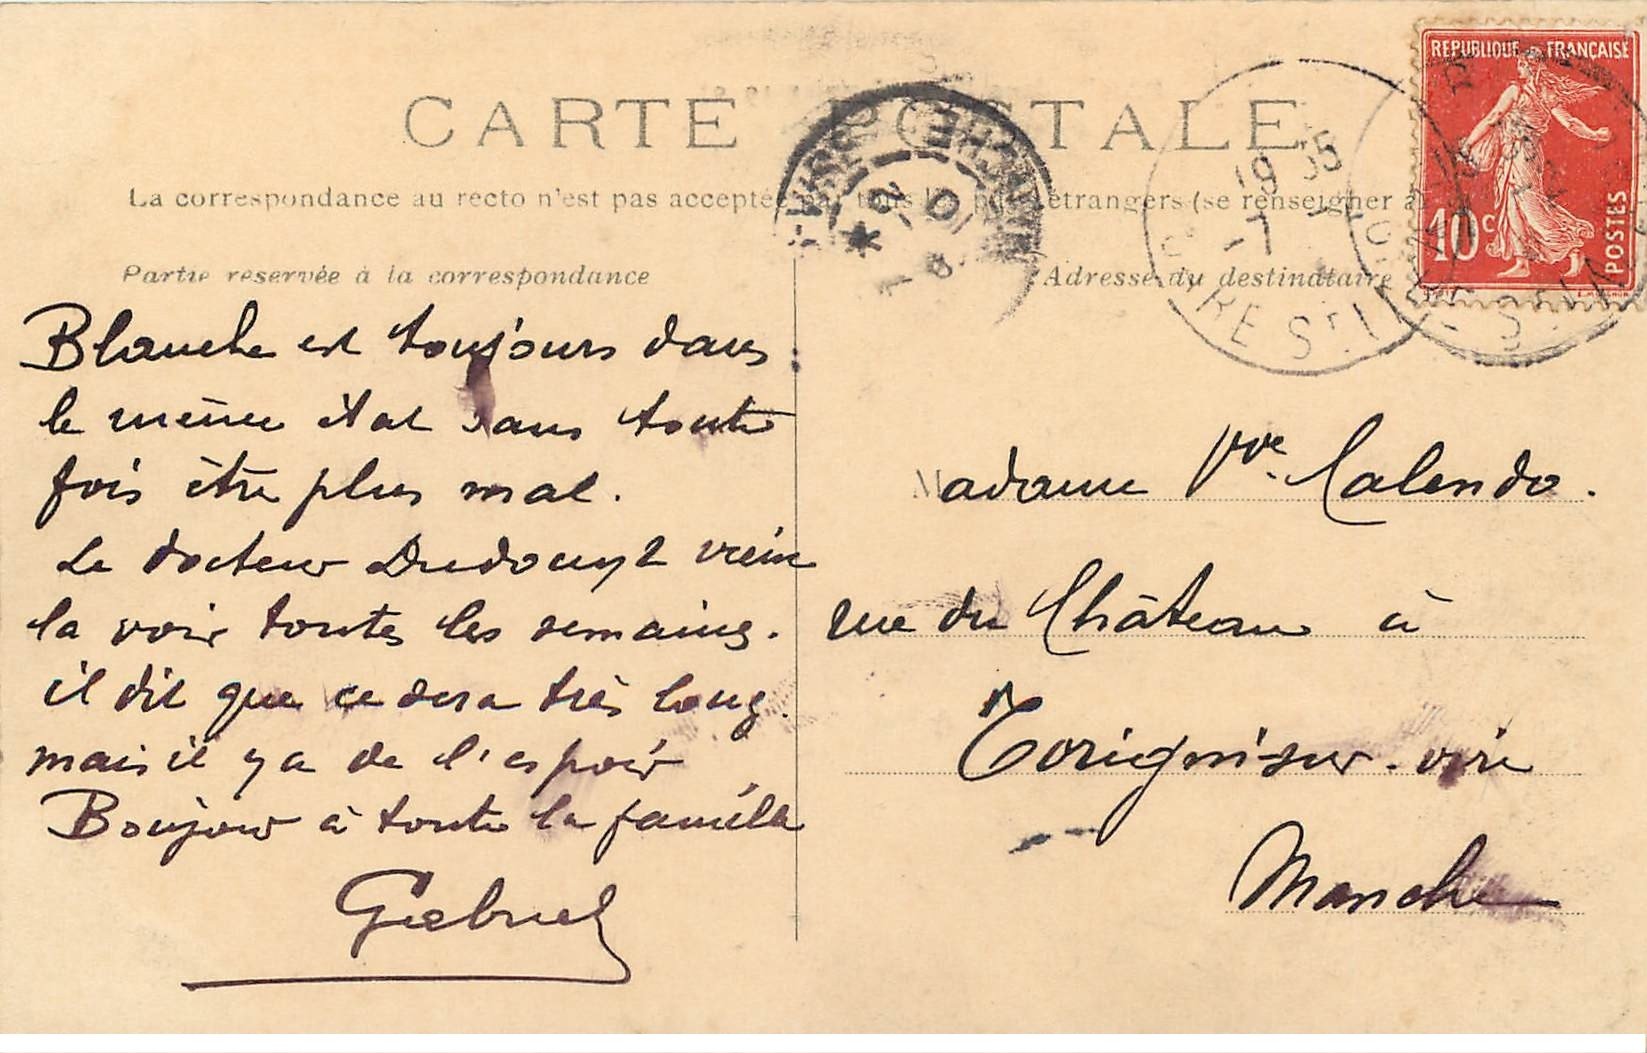 CARTE POSTALE
La correspondance au recto n'est pas acceptée par tous étrangers (se renseigner à
Partie réservée à la correspondance
Adresse du destinataire
REPUBLIQUE FRANÇAISE
10c
POSTES
19 35
-7
GARE St L
MANCHE
Blanche est toujours dans
le même état sans toute
fois être plus mal.
Le docteur Dudouyt vient
la voir toutes les semaines.
il dit que ce sera très long.
mais il y a de l'espoir
Boujour à toute la famille
Gabriel
Madame Vve Calendo.
rue du Château à
Torigni sur vire
Manche